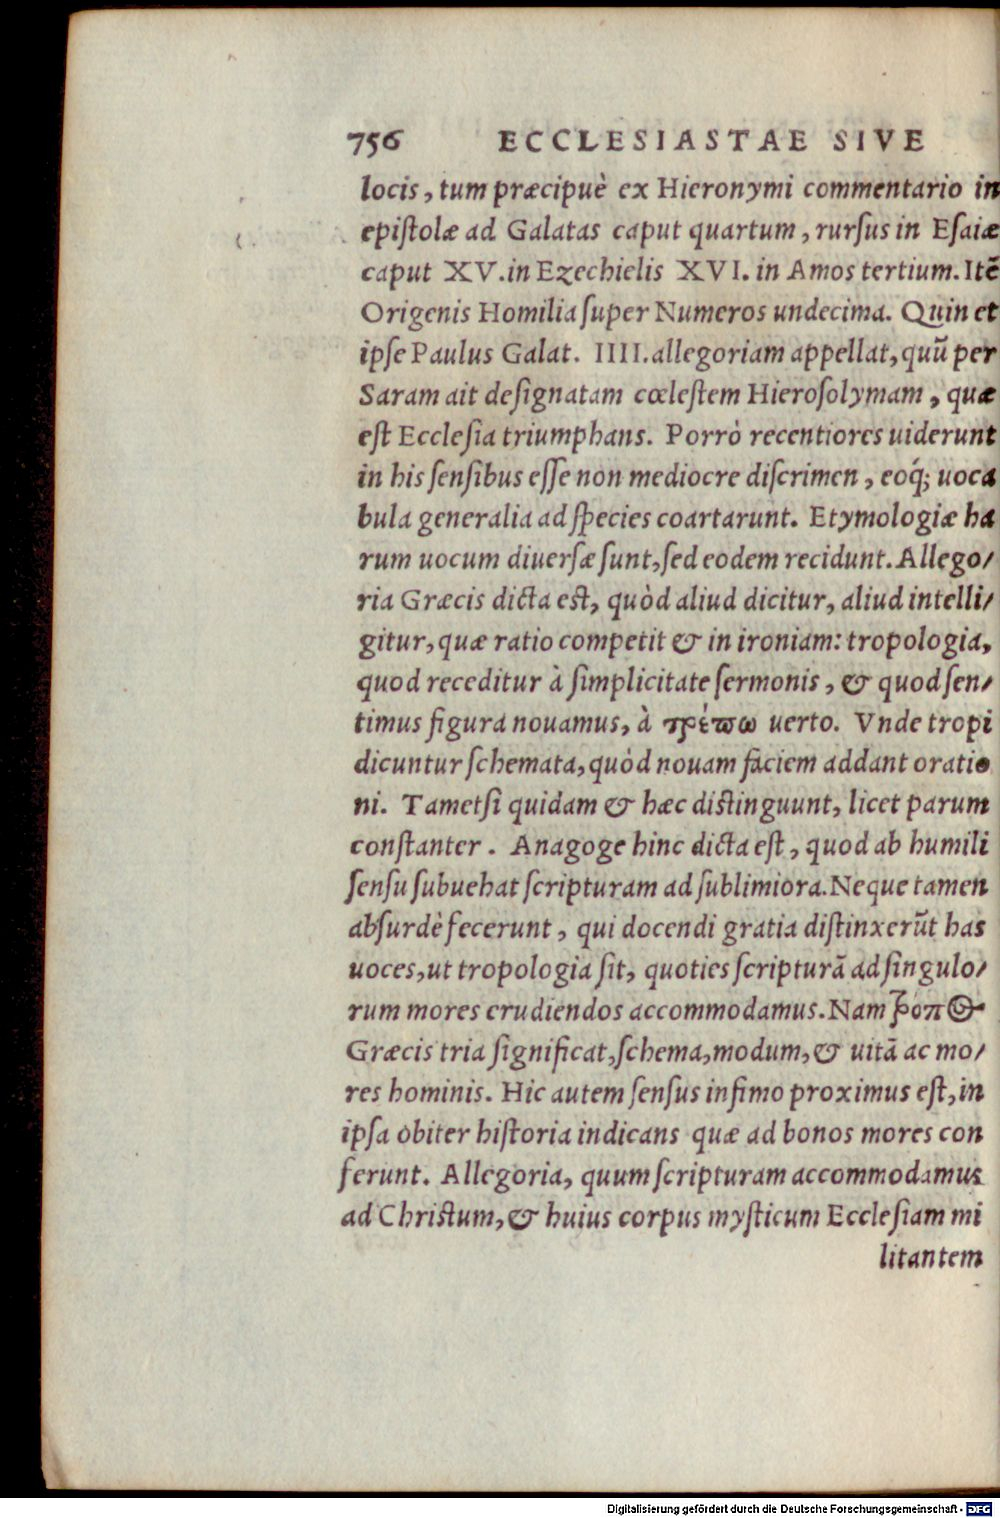 756 ECCLESIASTAE SIVE
locis, tum præcipuè ex Hieronymi commentario in
epiſtolæ ad Galatas caput quartum, rurſus in Eſaiæ
caput XV. in Ezechielis XVI. in Amos tertium. Itẽ
Origenis Homilia ſuper Numeros undecima. Quin et
ipſe Paulus Galat. IIII. allegoriam appellat, quũ per
Saram ait deſignatam cœleſtem Hieroſolymam, quæ
eſt Eccleſia triumphans. Porrò recentiores uiderunt
in his ſenſibus eſſe non mediocre diſcrimen, eoq́; uoca
bula generalia ad ſpecies coartarunt. Etymologiæ ha
rum uocum diuerſæ ſunt, ſed eodem recidunt. Allego/
ria Græcis dicta eſt, quòd aliud dicitur, aliud intelli/
gitur, quæ ratio competit & in ironiam: tropologia,
quod receditur à ſimplicitate ſermonis, & quod ſen/
timus figura nouamus, à τρέπω uerto. Vnde tropi
dicuntur ſchemata, quòd nouam faciem addant oratio
ni. Tametſi quidam & hæc diſtinguunt, licet parum
conſtanter. Anagoge hinc dicta eſt, quod ab humili
ſenſu ſubuehat ſcripturam ad ſublimiora. Neque tamen
abſurdè fecerunt, qui docendi gratia diſtinxerũt has
uoces, ut tropologia ſit, quoties ſcripturã ad ſingulo/
rum mores erudiendos accommodamus. Nam τρόπος
Græcis tria ſignificat, ſchema, modum, & uitã ac mo/
res hominis. Hic autem ſenſus infimo proximus eſt, in
ipſa obiter hiſtoria indicans quæ ad bonos mores con
ferunt. Allegoria, quum ſcripturam accommodamus
ad Chriſtum, & huius corpus myſticum Eccleſiam mi
litantem
Digitalisierung gefördert durch die Deutsche Forschungsgemeinschaft - DFG